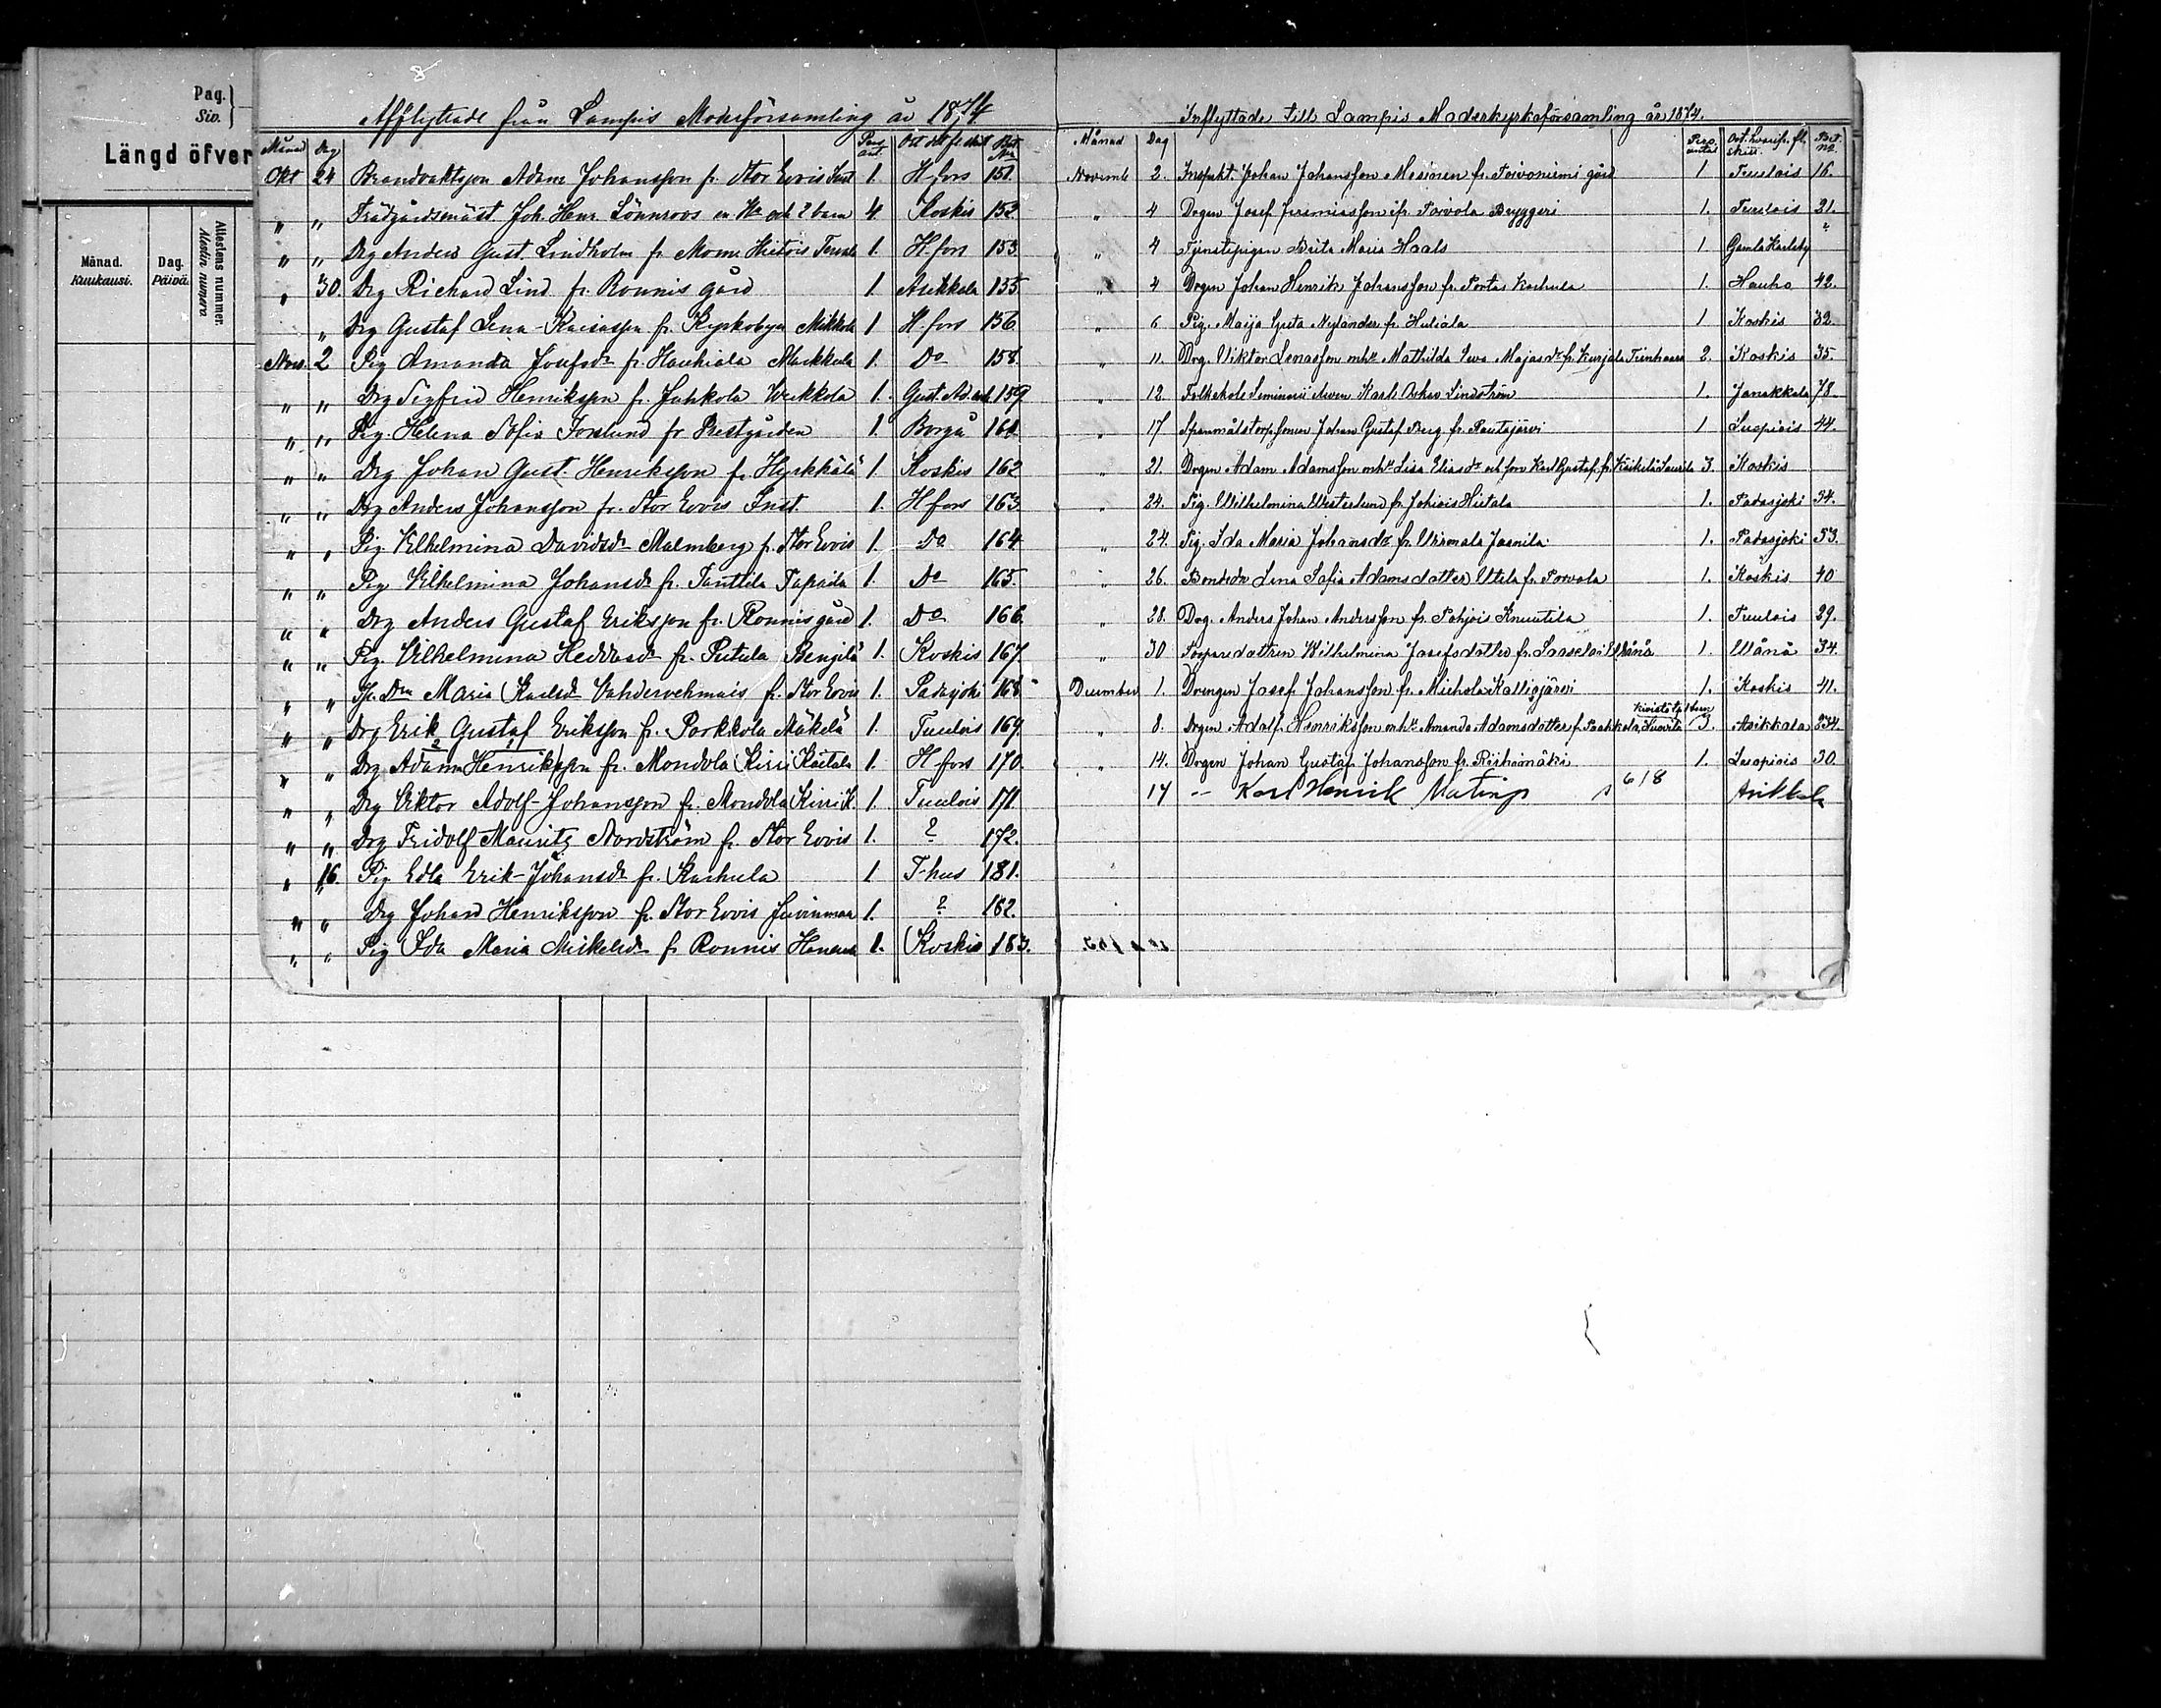 Pag.
Siv.
Längd öfver
Månad.
Kuukausi.
Dag.
Päivä.
Attestens nummer.
Alestin numero
8
Afflyttade från Lampis Moderförsamling år 1874
Månad Dag Pers. ant. Bet. No
Okt 24 Brandvaktsson Adam Johansson fr. Stor Evois Inst 1. H.fors 151.
" " Trädgårdsmäst. Joh. Henr. Lönnroos en Hu och 2 barn 4. Koskis 152
" " Drg Anders Gust. Lindholm fr Momm. Hietois 1. H.fors 153.
" 30. Drg Richard Lind fr. Ronnis gård 1. Asikkala 155
" Drg Gustaf Lena-Kaisasson fr. Kyrkobyn Mikkola 1 H.fors 156
Nov. 2 Pig Amanda Josefsdr fr. Haukiala Markkula 1. Do 158.
" " Drg Sigfrid Henriksson fr. Jahkola Uekkola 1. Gust. Ad. 159
" " Pig. Helena Sofia Forslund fr Prestgården 1. Borgå 161
" " Drg Johan Gust. Henriksson fr. Hyrkkälä 1. Koskis 162
" " Drg Anders Johansson fr. Stor Evois Inst. 1. H.fors 163
" " Pig Vilhelmina Davidsdr Malmberg fr. Stor Evois 1. Do 164
" " Pig Vilhelmina Johansdr fr. Tanttila Tapaila 1. Do 165.
" " Drg Anders Gustaf Eriksson fr. Ronnis gård 1. Do 166.
" " Pig. Vilhelmina Heddasdr fr. Putula Benjilä 1. Koskis 167.
" " Maria Karlsdr Vahdervehmais fr. Stor Evois 1. Padasjoki 168
" " Drg Erik Gustaf Eriksson fr. Porkkola Mäkelä 1. Tuulois 169.
" " Drg Adam Henriksson fr. Mondola Kirri Kaitala 1. H.fors 170.
" " Drg Viktor Adolf Johansson fr. Mondola Kirri K. 1. Tuulois 171.
" " Drg Fridolf Mauritz Nordström fr. Stor Evois 1. ? 172.
" 16. Pig Edla Erik-Johansdr fr. Karhula 1 T-hus 181.
" " Drg Johan Henriksson fr. Stor Evois 1. ? 182.
" " Pig Ida Maria Mikelsdr fr Ronnis 1. Koskis 183.
Inflyttade till Lampis Moderkyrkoförsamling år 1874.
Månad Dag Pers. antal Ort hvarifr. fl. skett. Bet. No.
Novemb 2. Inspekt. Johan Johansson Mesiönen fr. Toivoniemi gård 1 Tuulois 16.
" 4 Drgen Josef Jeremiasson ifr. Porvola Bryggeri 1. Tuulois 21.
" 4 Tjenstepigan Brita Maria Haals 1 Gamla Karleby "
" 4 Drgen Johan Henrik Johansson fr. Portas Karhula 1. Hauho 42.
" 6 Pig. Maija Greta Nylander fr. Huliala 1 Koskis 32.
" 11. Drg. Viktor Lenasson m. h. Mathilda Eva Majasdr fr. Kurjala Tienhaara 2. Koskis 35.
" 12. Folkskole Seminarii eleven Karl Oskar Lindström 1. Janakkala 78.
" 17 Spanmålstorp. sonen Johan Gustaf Berg fr. Pautajärvi 1 Luopiois 44.
" 21. Drgen Adam Adamsson m. h. Lisa Eliasdr och son Karl Gustaf fr. Käikälä Saurila 3. Koskis
" 24. Pig. Wilhelmina Westerlund fr. Johiois Hietala 1. Padasjoki 34.
" 24. Pig. Ida Maria Johansdr fr. Urimala Jaanila 1. Padasjoki 53.
" 26. Bondedr Lena Sofia Adamsdotter Utela fr. Porvola 1. Koskis 40
" 28. Drg. Anders Johan Andersson fr. Pohjois Knuutila 1. Tuulois 29.
" 30 Torparedottren Wilhelmina Josefsdotter fr. 1. Wånå 34.
December 1. Drengen Josef Johansson fr. Michola Kalliojärvi 1. Koskis 41.
" 8. Drgen Adolf Henriksson m. h. Amanda Adamsdotter fr. Paakkola, Suurila 3. Asikkala 334.
" 14. Drgen Johan Gustaf Johansson fr. Riihimäki 1. Luopiois 30
17 – Karl Henrik 618 Asikkala